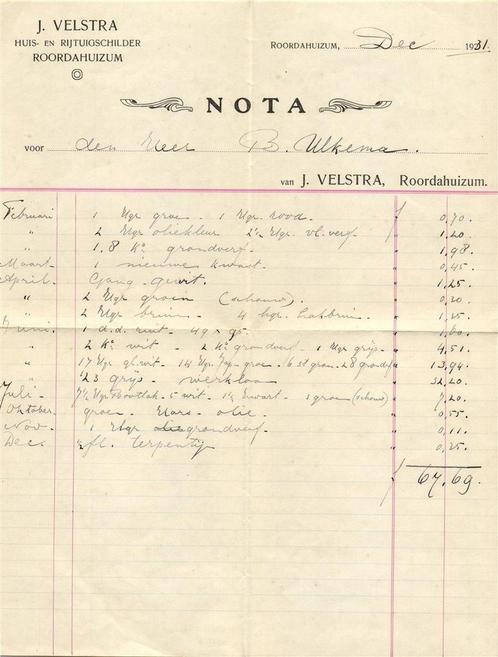 J. VELSTRA
HUIS- EN RIJTUIGSCHILDER
ROORDAHUIZUM
ROORDAHUIZUM, Dec 1931.
NOTA
voor den Heer B. Ulkema.
van J. VELSTRA, Roordahuizum.
Februari 1 Hgr groen - 1 Hgr. rood. 0,70
" 2 Hgr oliekleur 2½ Hgr. vl. verf " 1,20
" 1,8 Kº grondverf " 1,98
Maart 1 nieuwe kwast " 0,45
April Gang gewit. " 1,25
" 2 Hgr groen (schouw) " 0,20
" 2 Hgr bruin - 4 hgr. " 1,25
Juni 1 d.d. ruit - " 1,60
" 2 Kº wit - 2 Kº grondverf 1 Hgr grijs " 4,51
" 17 Hgr gl. wit - 14 Hgr groen - 28 grondv " 13,94
" 23 grijs - werkloon " 32,20
Juli 5 wit - kwart - groen (schouw) " 7,20
Oktober groen - olie " 0,55
Nov. 1 Hgr grondverf " 0,11
Dec. fl. terpentijn " 0,25
67,69